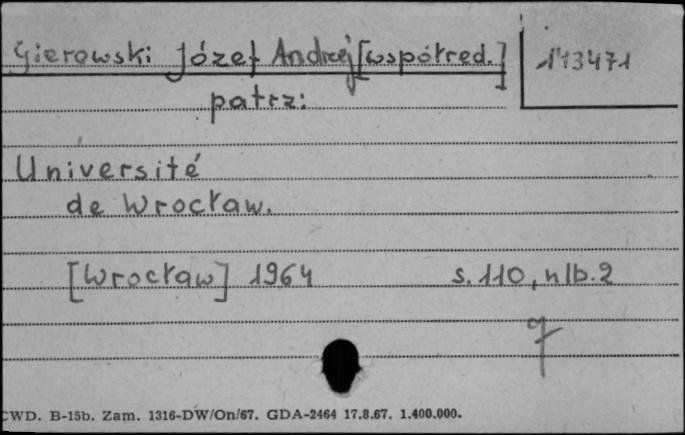 Gierowski Józef Andrzej [współred.]
143471
patrz:
Université
de Wrocław.
[Wrocław] 1964 s. 110, nlb. 2
CWD. B-15b. Zam. 1316-DW/On/67. GDA-2464 17.8.67. 1.400.000.